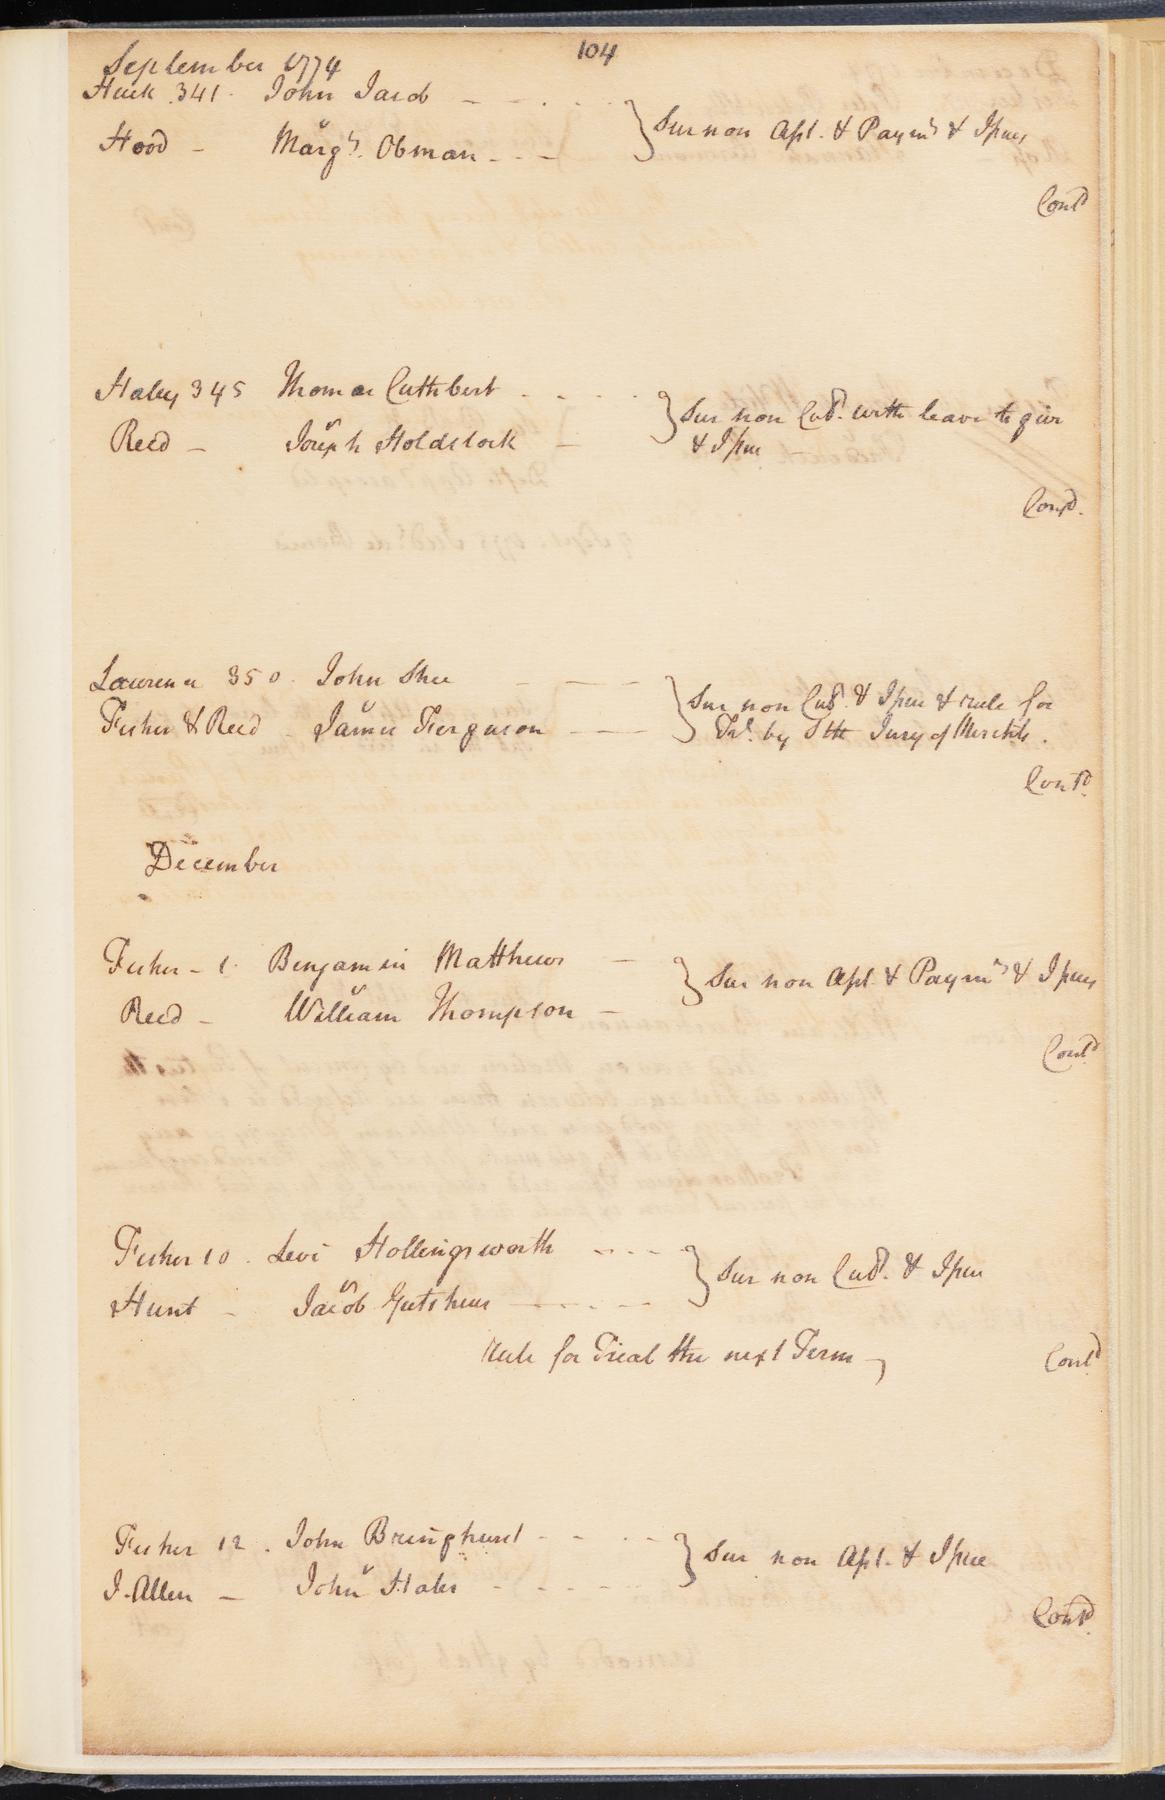 104
September 1774
Huck 341. John Jacob
Hood - Marg.t Obman
Sur non Asst. & Paym.t & Issues
Cont.d
345 Thomas Cuthbert
Reed - Joseph Holdstock
Sur non Cul.d with leave to give
& Issue
Cont.d
Lawrence 350. John Shee
Fisher & Reed James Ferguson
Sur non Cul.d & Issue & rule for
Tr.l by Jury of Merchts.
Cont.d
December
Fisher - 1. Benjamin Matthews
Reed - William Thompson
Sur non Asst. & Paym.t & Issues
Cont.d
Fisher 10. Levi Hollingsworth
Hunt - Jacob
Sur non Cul.d. & Issue
Rule for Trial the next Term
Cont.d
Fisher 12. John Bringhurst
J. Allen - John Hahs
Sur non Asst. & Issue
Cont.d